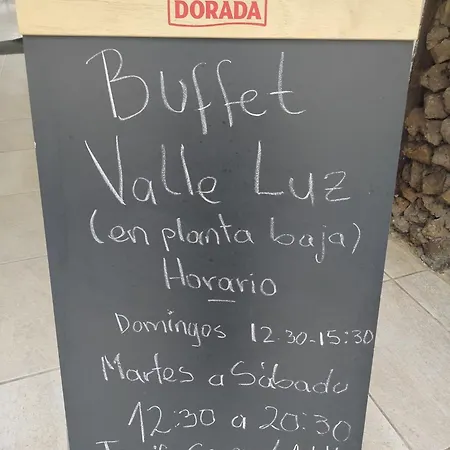 DORADA
Buffet
Valle Luz
(en planta baja)
Horario
Domingos 12.30-15:30
Martes a Sábado
12:30 a 20:30